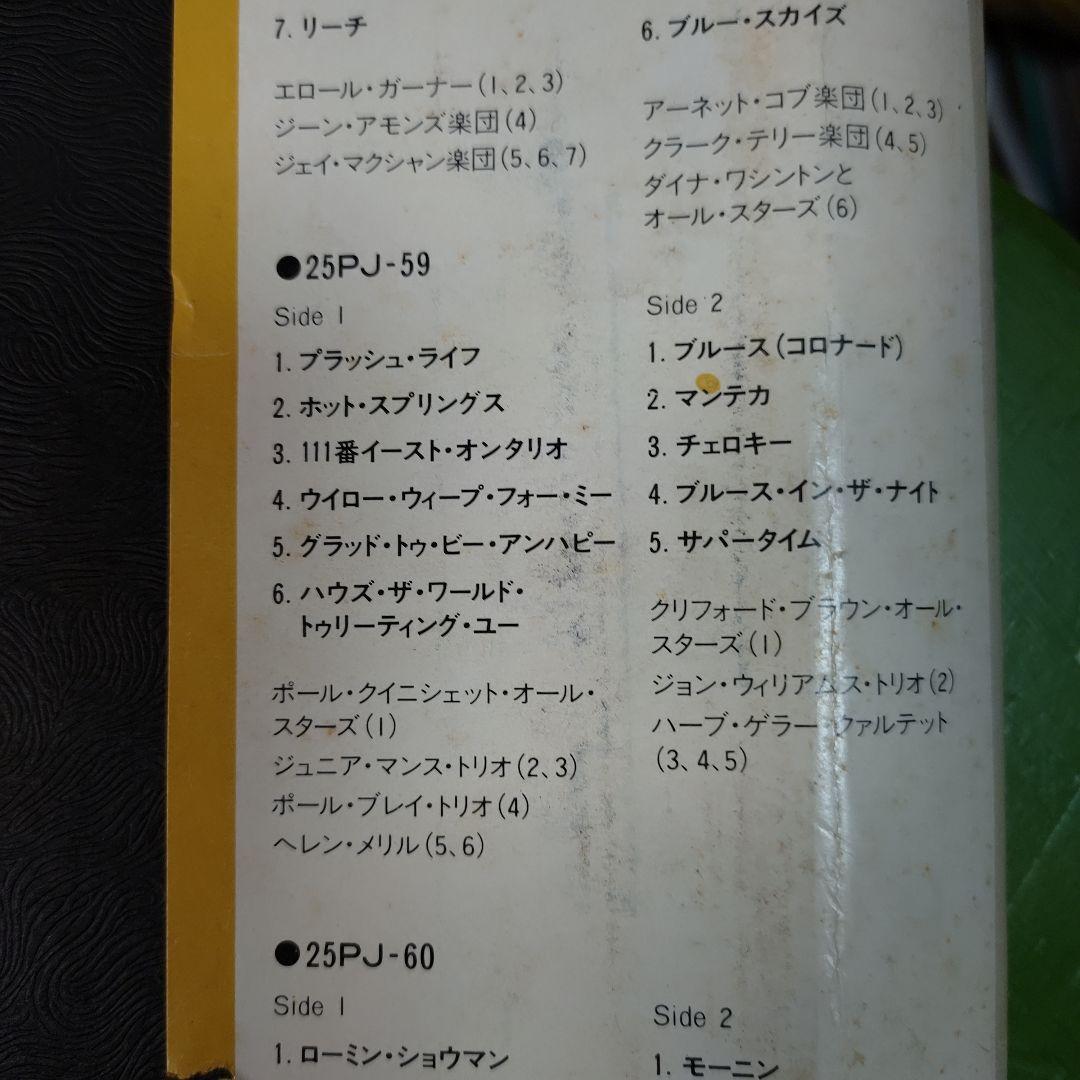 7. リーチ
エロール・ガーナー(1、2、3)
ジーン・アモンズ楽団(4)
ジェイ・マクシャン楽団(5、6、7)
6. ブルー・スカイズ
アーネット・コブ楽団(1、2、3)
クラーク・テリー楽団(4、5)
ダイナ・ワシントンと
オール・スターズ(6)
●25PJ-59
Side 1
1. プラッシュ・ライフ
2. ホット・スプリングス
3. 111番イースト・オンタリオ
4. ウイロー・ウィープ・フォー・ミー
5. グラッド・トゥ・ビー・アンハピー
6. ハウズ・ザ・ワールド・
トゥリーティング・ユー
ポール・クイニシェット・オール・
スターズ(1)
ジュニア・マンス・トリオ(2、3)
ポール・ブレイ・トリオ(4)
ヘレン・メリル(5、6)
Side 2
1. ブルース(コロナード)
2. マンテカ
3. チェロキー
4. ブルース・イン・ザ・ナイト
5. サパータイム
クリフォード・ブラウン・オール・
スターズ(1)
ジョン・ウィリアムス・トリオ(2)
ハーブ・ゲラー・クァルテット
(3、4、5)
●25PJ-60
Side 1
1. ローミン・ショウマン
Side 2
1. モーニン